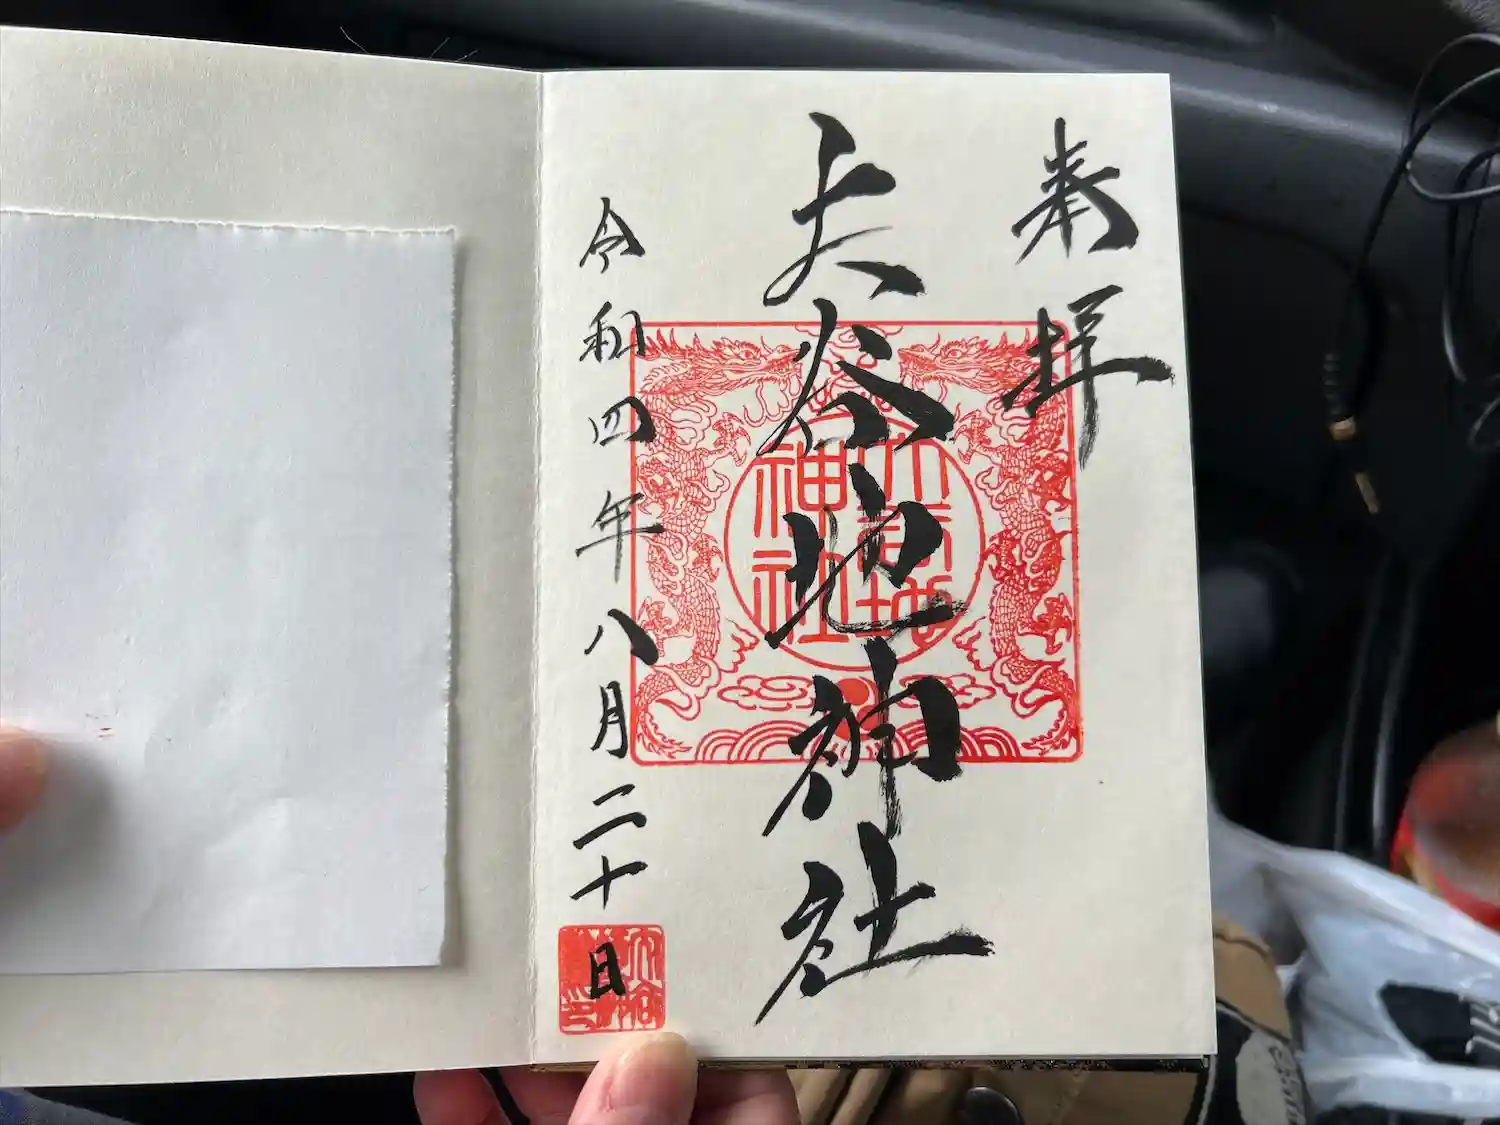 奉拝
大谷地神社
大谷地
神社
令和四年八月二十日